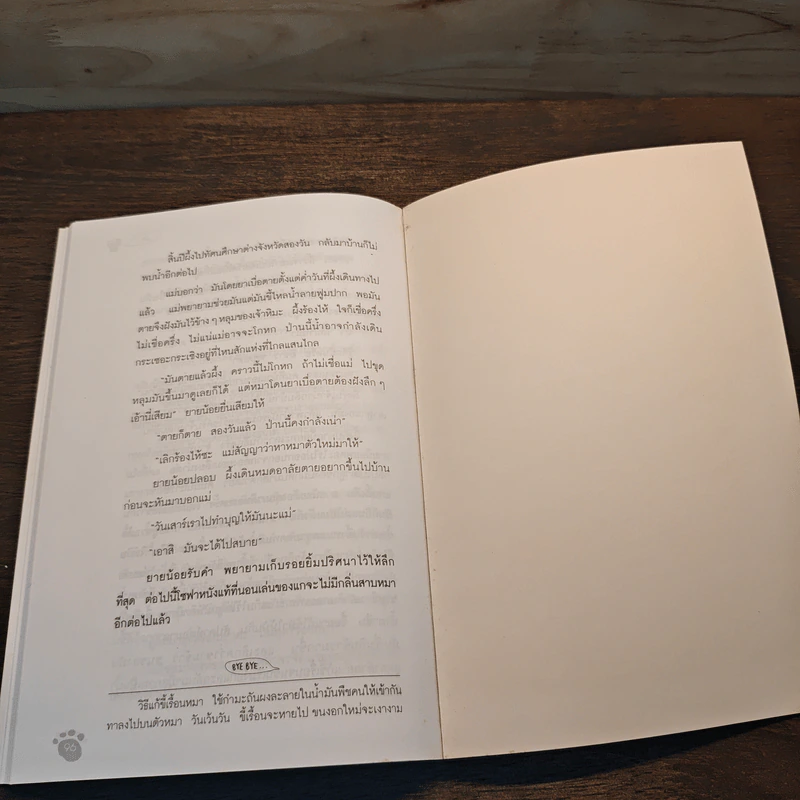 สิ้นปีผึ้งไปทัศนศึกษาต่างจังหวัดสองวัน กลับมาบ้านก็ไม่
พบน้ำอีกต่อไป
แม่บอกว่า มันโดยยาเบื่อตายตั้งแต่ค่ำวันที่ผึ้งเดินทางไป
แล้ว แม่พยายามช่วยมันแต่มันขี้ไหลน้ำลายฟูมปาก พอมัน
ตายจึงฝังมันไว้ข้าง ๆ หลุมของเจ้าหิมะ ผึ้งร้องไห้ ใจก็เชื่อครึ่ง
ไม่เชื่อครึ่ง ไม่แน่แม่อาจจะโกหก ป่านนี้น้ำอาจกำลังเดิน
กระเซอะกระเซิงอยู่ที่ไหนสักแห่งที่ไกลแสนไกล
"มันตายแล้วผึ้ง คราวนี้ไม่โกหก ถ้าไม่เชื่อแม่ ไปขุด
หลุมมันขึ้นมาดูเลยก็ได้ แต่หมาโดนยาเบื่อตายต้องฝังลึก ๆ
เอ้านี่เสียม" ยายน้อยยื่นเสียมให้
"ตายก็ตาย สองวันแล้ว ป่านนี้คงกำลังเน่า"
"เลิกร้องไห้ซะ แม่สัญญาว่าหาหมาตัวใหม่มาให้"
ยายน้อยปลอบ ผึ้งเดินหมดอาลัยตายอยากขึ้นไปบ้าน
ก่อนจะหันมาบอกแม่
"วันเสาร์เราไปทำบุญให้มันนะแม่"
"เอาสิ มันจะได้ไปสบาย"
ยายน้อยรับคำ พยายามเก็บรอยยิ้มปริศนาไว้ให้ลึก
ที่สุด ต่อไปนี้โซฟาหนังแท้ที่นอนเล่นของแกจะไม่มีกลิ่นสาบหมา
อีกต่อไปแล้ว
BYE BYE...
วิธีแก้ขี้เรื้อนหมา ใช้กำมะถันผงละลายในน้ำมันพืชคนให้เข้ากัน
ทาลงไปบนตัวหมา วันเว้นวัน ขี้เรื้อนจะหายไป ขนงอกใหม่จะเงางาม
๙๖